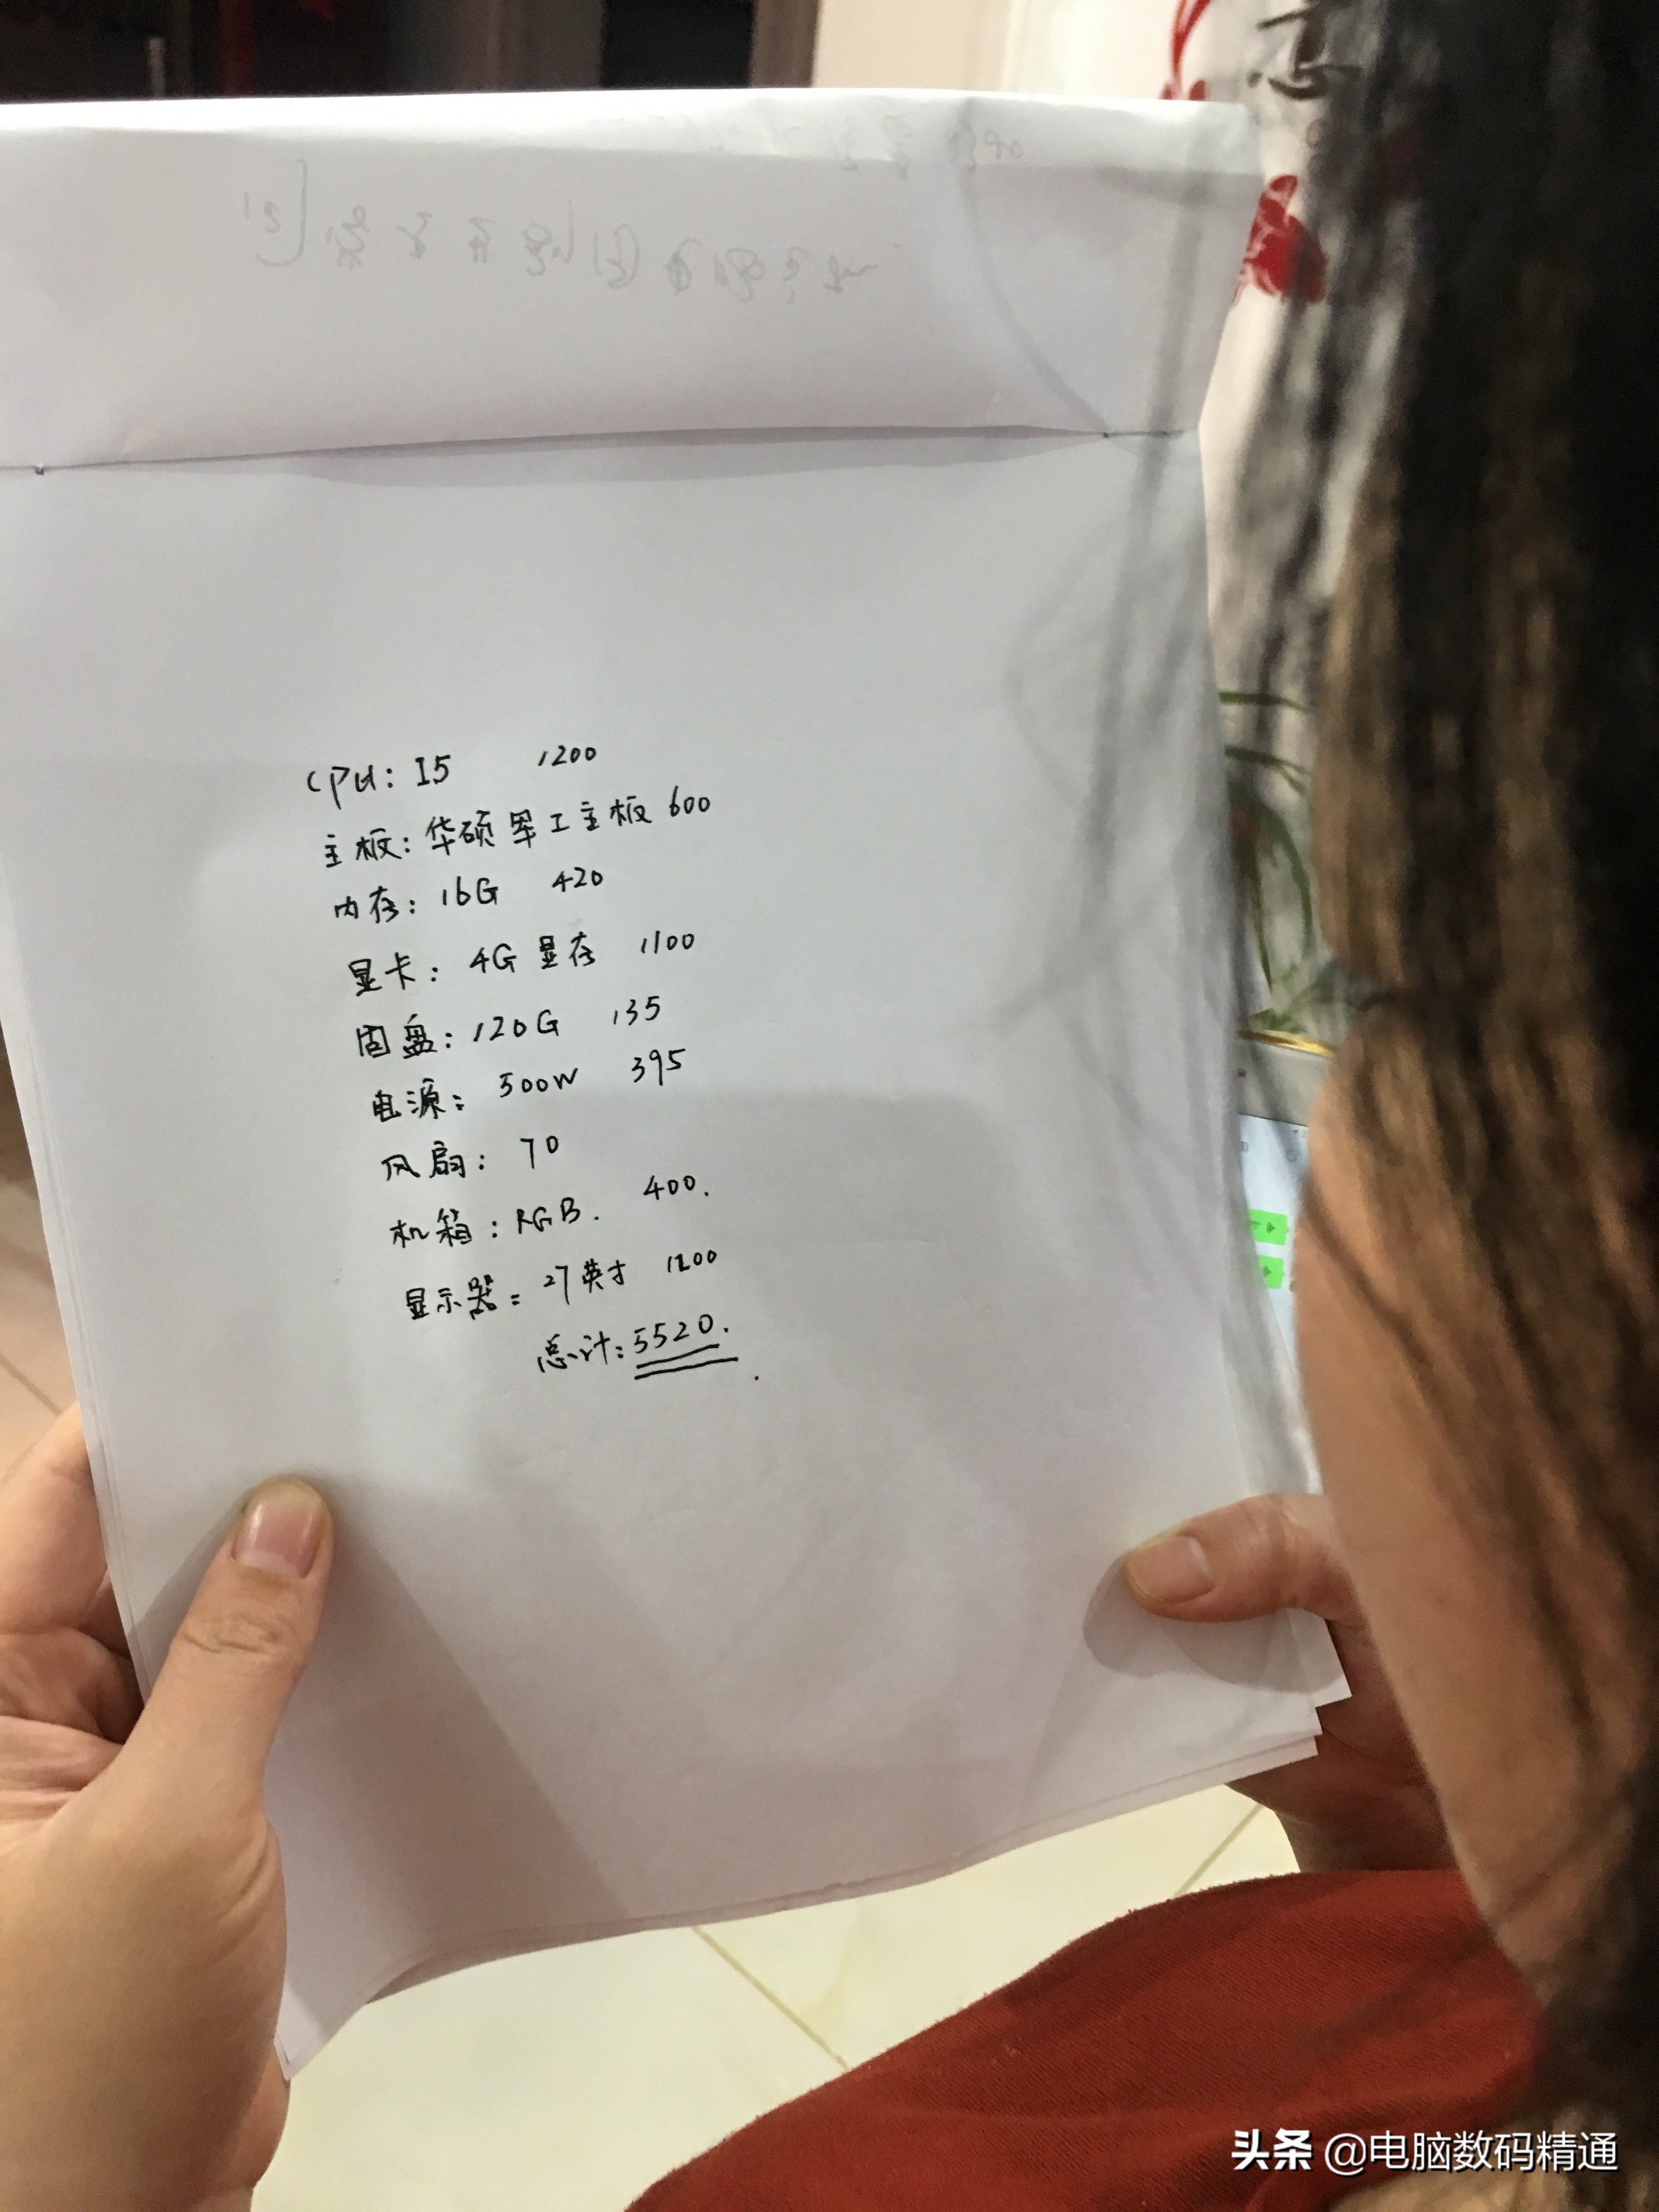 CPU: I5 1200
主板: 华硕军工主板 600
内存: 16G 420
显卡: 4G显存 1100
固盘: 120G 135
电源: 500W 395
风扇: 70
机箱: RGB. 400.
显示器: 27英寸 1200
总计: 5520.
头条 @电脑数码精通